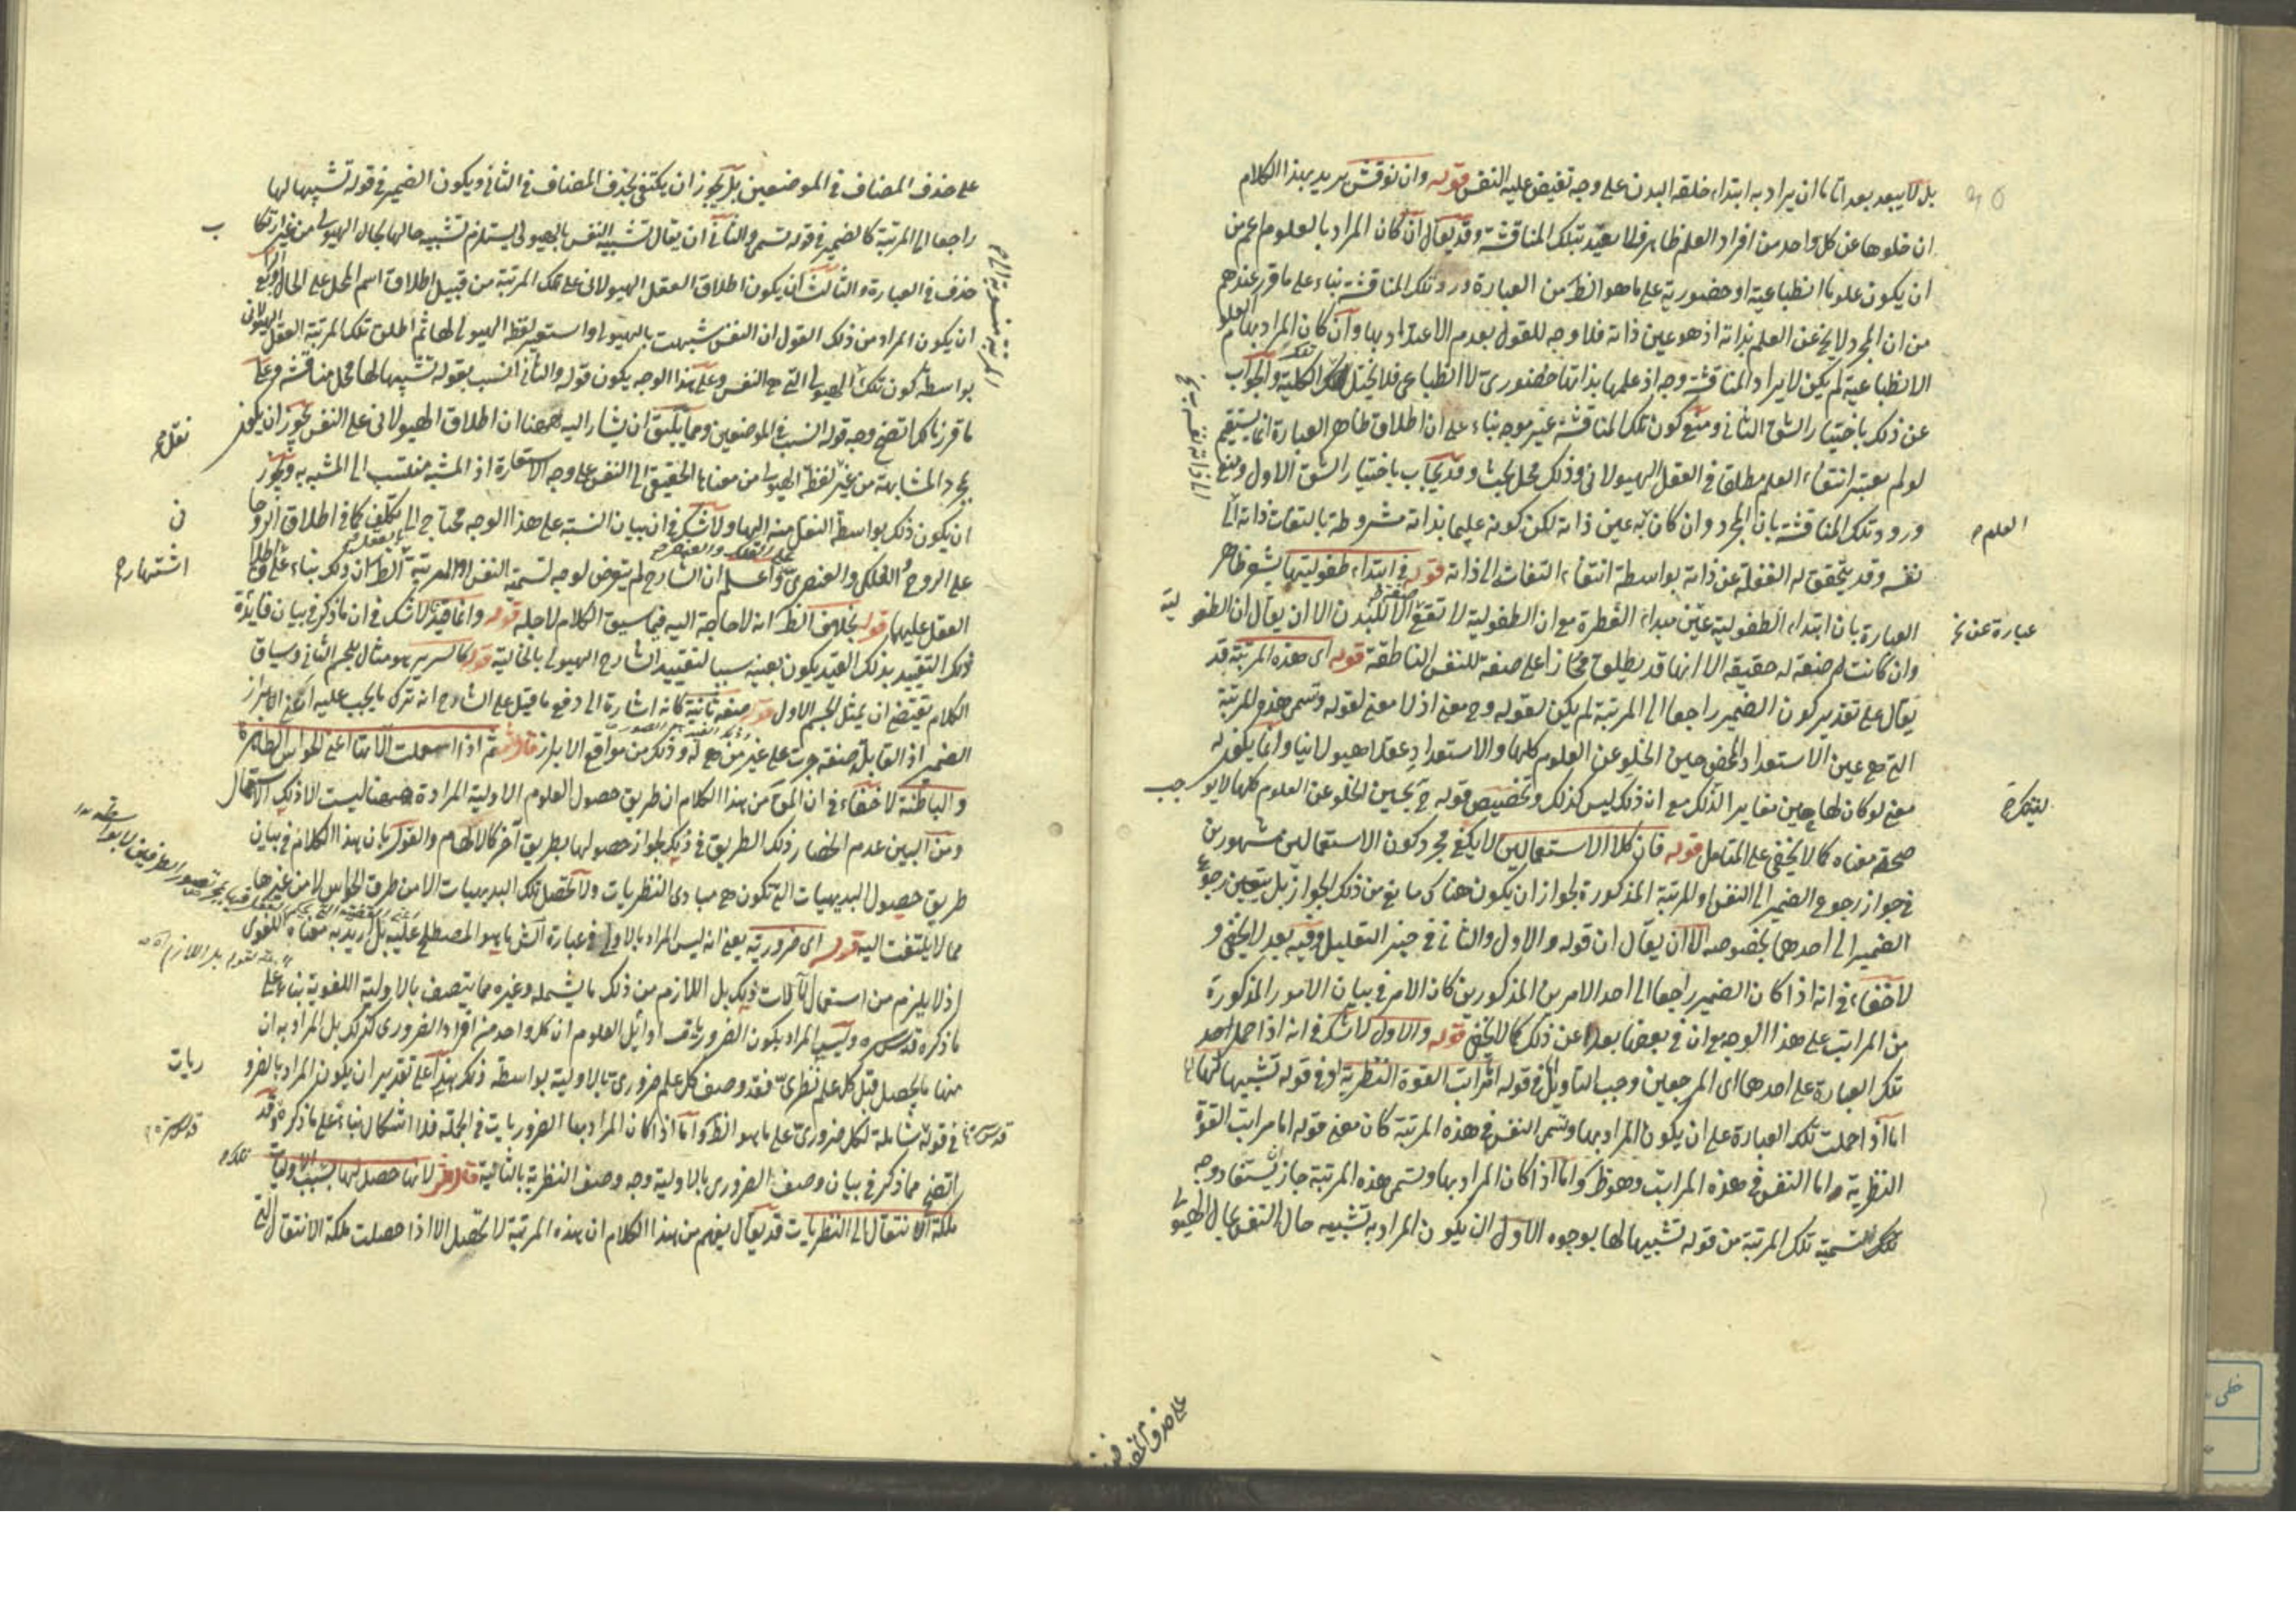 بل لا يبعد بعد اتانا ان يراد به ابتداء خلقه البدن على وجه تفيض عليه النفس قوله وان نوقش يريد بهذا الكلام
ان خلوها عن كل واحد من افراد العلم ظاهر فلا يعتد بتلك المناقشة وقد يقال ان كان المراد بالعلوم اعم من
ان يكون علوما انطباعية او حضورية على ما هو الظ من العبارة ورد تلك المناقشة بناء على ما قرر عندهم
من ان المجرد لا يخ عن العلم بذاته اذ هو عين ذاته فلا وجه للقول بعدم الاعتداد بها وان كان المراد بها العلوم
الانطباعية لم يكن لايراد المناقشة وجه اذ علمها بذاتها حضوري لا انطباعي فلا يختل تلك الكلية والجواب
عن ذلك باختيار الشق الثاني ومنع كون تلك المناقشة غير موجه بناء على ان اطلاق ظاهر العبارة انما يستقيم
لو لم يعتبر انتفاء العلم مطلقا في العقل الهيولاني وذلك محل بحث وقد يجاب باختيار الشق الاول ومنع
ورود تلك المناقشة بان المجرد وان كان عين ذاته لكن كونه عليما بذاته مشروطة بالتفات ذاته الى
العلم
نفسه وقد يتحقق له الغفلة عن ذاته بواسطة انتفاء التفاته الى ذاته قوله في ابتداء طفوليتها يشعر ظاهر
العبارة بان ابتداء الطفولية عين مبداء الفطرة مع ان الطفولية لا تقع الا للبدن الا ان يقال ان الطفولية
عبارة عن
وان كانت صفة له حقيقة الا انها قد يطلق مجازا على صفة للنفس الناطقة قوله اى هذه المرتبة قد
يقال على تقدير كون الضمير راجعا الى المرتبة لم يكن لقوله وح معنى اذ لا معنى لقوله وتسمى هذه المرتبة
التي هي عين الاستعداد المحض حين الخلو عن العلوم كلها والاستعداد عقلا هيولانيا وانما يكون له
معنى لو كان لها حين مغاير لذلك مع ان ذلك ليس كذلك وتخصيص قوله ح بحين الخلو عن العلوم كلها لا يوجب
صحة معناه كما لا يخفى على المتامل قوله فان كلا الاستعمالين لا يكفي مجرد كون الاستعمالين مشهورين
في جواز رجوع الضمير الى النفس او المرتبة المذكورة لجواز ان يكون هناك مانع من ذلك الجواز بل يتعين رجوع
الضمير الى احدهما بخصوصه الا ان يقال ان قوله والاول والثاني في حيز التعليل وفيه بعد لا يخفى و
لا خفاء في انه اذا كان الضمير راجعا الى احد الامرين المذكورين كان الامر في بيان الامور المذكورة
من المراتب على هذا الوجه مع ان في بعضها بعدا عن ذلك كما لا يخفى قوله والاول لا شك في انه اذا حمل احد
تلك العبارة على احدهما اى المرجعين وجب التاويل في قوله مراتب القوة النظرية او في قوله تشبيها لها
اما اذا حملت تلك العبارة على ان يكون المراد بها وتسمى النفس في هذه المرتبة كان معنى قوله اما مراتب القوة
النظرية اما النفس في هذه المراتب وهو ظ واما اذا كان المراد بها وتسمى هذه المرتبة جاز يستفاد وجه
تلك التسمية تلك المرتبة من قوله تشبيها لها بوجوه الاول ان يكون المراد به تشبيه حال النفس بحال الهيولى
على حذف المضاف في الموضعين بل يجوز ان يكتفى بحذف المضاف في الثاني ويكون الضمير في قوله تشبيها لها
راجعا الى المرتبة كالضمير في قوله تسمى والثاني ان يقال تشبيه النفس بالهيولى يستلزم تشبيه حالها بحال الهيولى من غير ارتكاب
حذف في العبارة والثالث ان يكون اطلاق العقل الهيولاني على تلك المرتبة من قبيل اطلاق اسم المحل على الحال
ان يكون المراد من ذلك القول ان النفس شبهت بالهيولى او استعير لفظ الهيولى لها ثم اطلق تلك المرتبة العقل الهيولاني
بواسطة كون تلك الهيولى التي هي النفس وعلى هذا الوجه يكون قوله والثاني انسب بقوله تشبيها لها محل مناقشة وعلى
ما قررنا كما اتضح وجه قوله انسب في الموضعين ومما يليق ان يشار اليه ههنا ان اطلاق الهيولاني على النفس يجوز ان يكون
بمجرد المشابهة من غير نقل لفظ الهيولى من معناها الحقيقي الى النفس على وجه الاستعارة اذ المشبه منتسب الى المشبه به ويجوز
ان يكون ذلك بواسطة النقل منه اليها ولا شك في ان بيان النسبة على هذا الوجه محتاج الى تكلف كما في اطلاق الروحاني
على الروح الفلكي والعنصري واعلم ان الشارح لم يتعرض لوجه تسمية النفس او المرتبة الظ ان ذلك بناء على اشتهار اطلاق
العقل عليها قوله بخلاف الظ انه لا حاجة اليه فيما سيق الكلام لاجله قوله وانما قيد لا شك في ان ما ذكر في بيان فايدة
ذلك التقييد بذلك القيد يكون بعينه سببا لتقييد الشارح الهيولى بالخالية قوله كالسرير هو مثال للجسم الثاني وسياق
الكلام يقتضى ان يمثل للجسم الاول قوله صفة ثانية كانه اشارة الى دفع ما قيل على الشارح انه ترك ما يجب عليه اعنى ابراز
الضمير اذ القابلة صفة جرت على غير من هي له وذلك من مواقع الابراز قال الش ثم اذا استعملت الاتها اعنى الحواس الظاهرة
والباطنة لا خفاء في ان المق من هذا الكلام ان طريق حصول العلوم الاولية المرادة ههنا ليست الا ذلك الاستعمال
ومن البين عدم انحصار ذلك الطريق في ذلك لجواز حصولها بطريق آخر كالالهام والقول بان هذا الكلام في بيان
طريق حصول البديهيات التي تكون هي مبادى النظريات ولا تحصل تلك البديهيات الا من طرق الحواس لا من غيرها
مما لا يلتفت اليه قوله اى ضرورية يعنى انه ليس المراد بالاولى في عبارة الش ما هو المصطلح عليه بل اريد به معناه اللغوى
اذ لا يلزم من استعمال الآلات ذلك بل اللازم من ذلك ما يشمله وغيره مما يتصف بالاولية اللغوية بناء على
ما ذكره قدس سره وليس المراد بكون الضروريات اوائل العلوم ان كل واحد من افراد الضرورى كذلك بل المراد به ان
منها ما يحصل قبل كل علم نظرى فقد وصف كل علم ضرورى بالاولية بواسطة ذلك هذا على تقدير ان يكون المراد بالضروريات
في قوله شاملة لكل ضرورى على ما هو الظ واما اذا كان المراد بها الضروريات في الجملة فلا اشكال بناء على ما ذكره وقد
اتضح مما ذكر في بيان وصف الضرورى بالاولية وجه وصف النظرية بالثانية قال الش لانها حصل لها بسبب الاوليات
ملكة الانتقال الى النظريات قد يقال يفهم من هذا الكلام ان هذه المرتبة لا تحصل الا اذا حصلت ملكة الانتقال التي